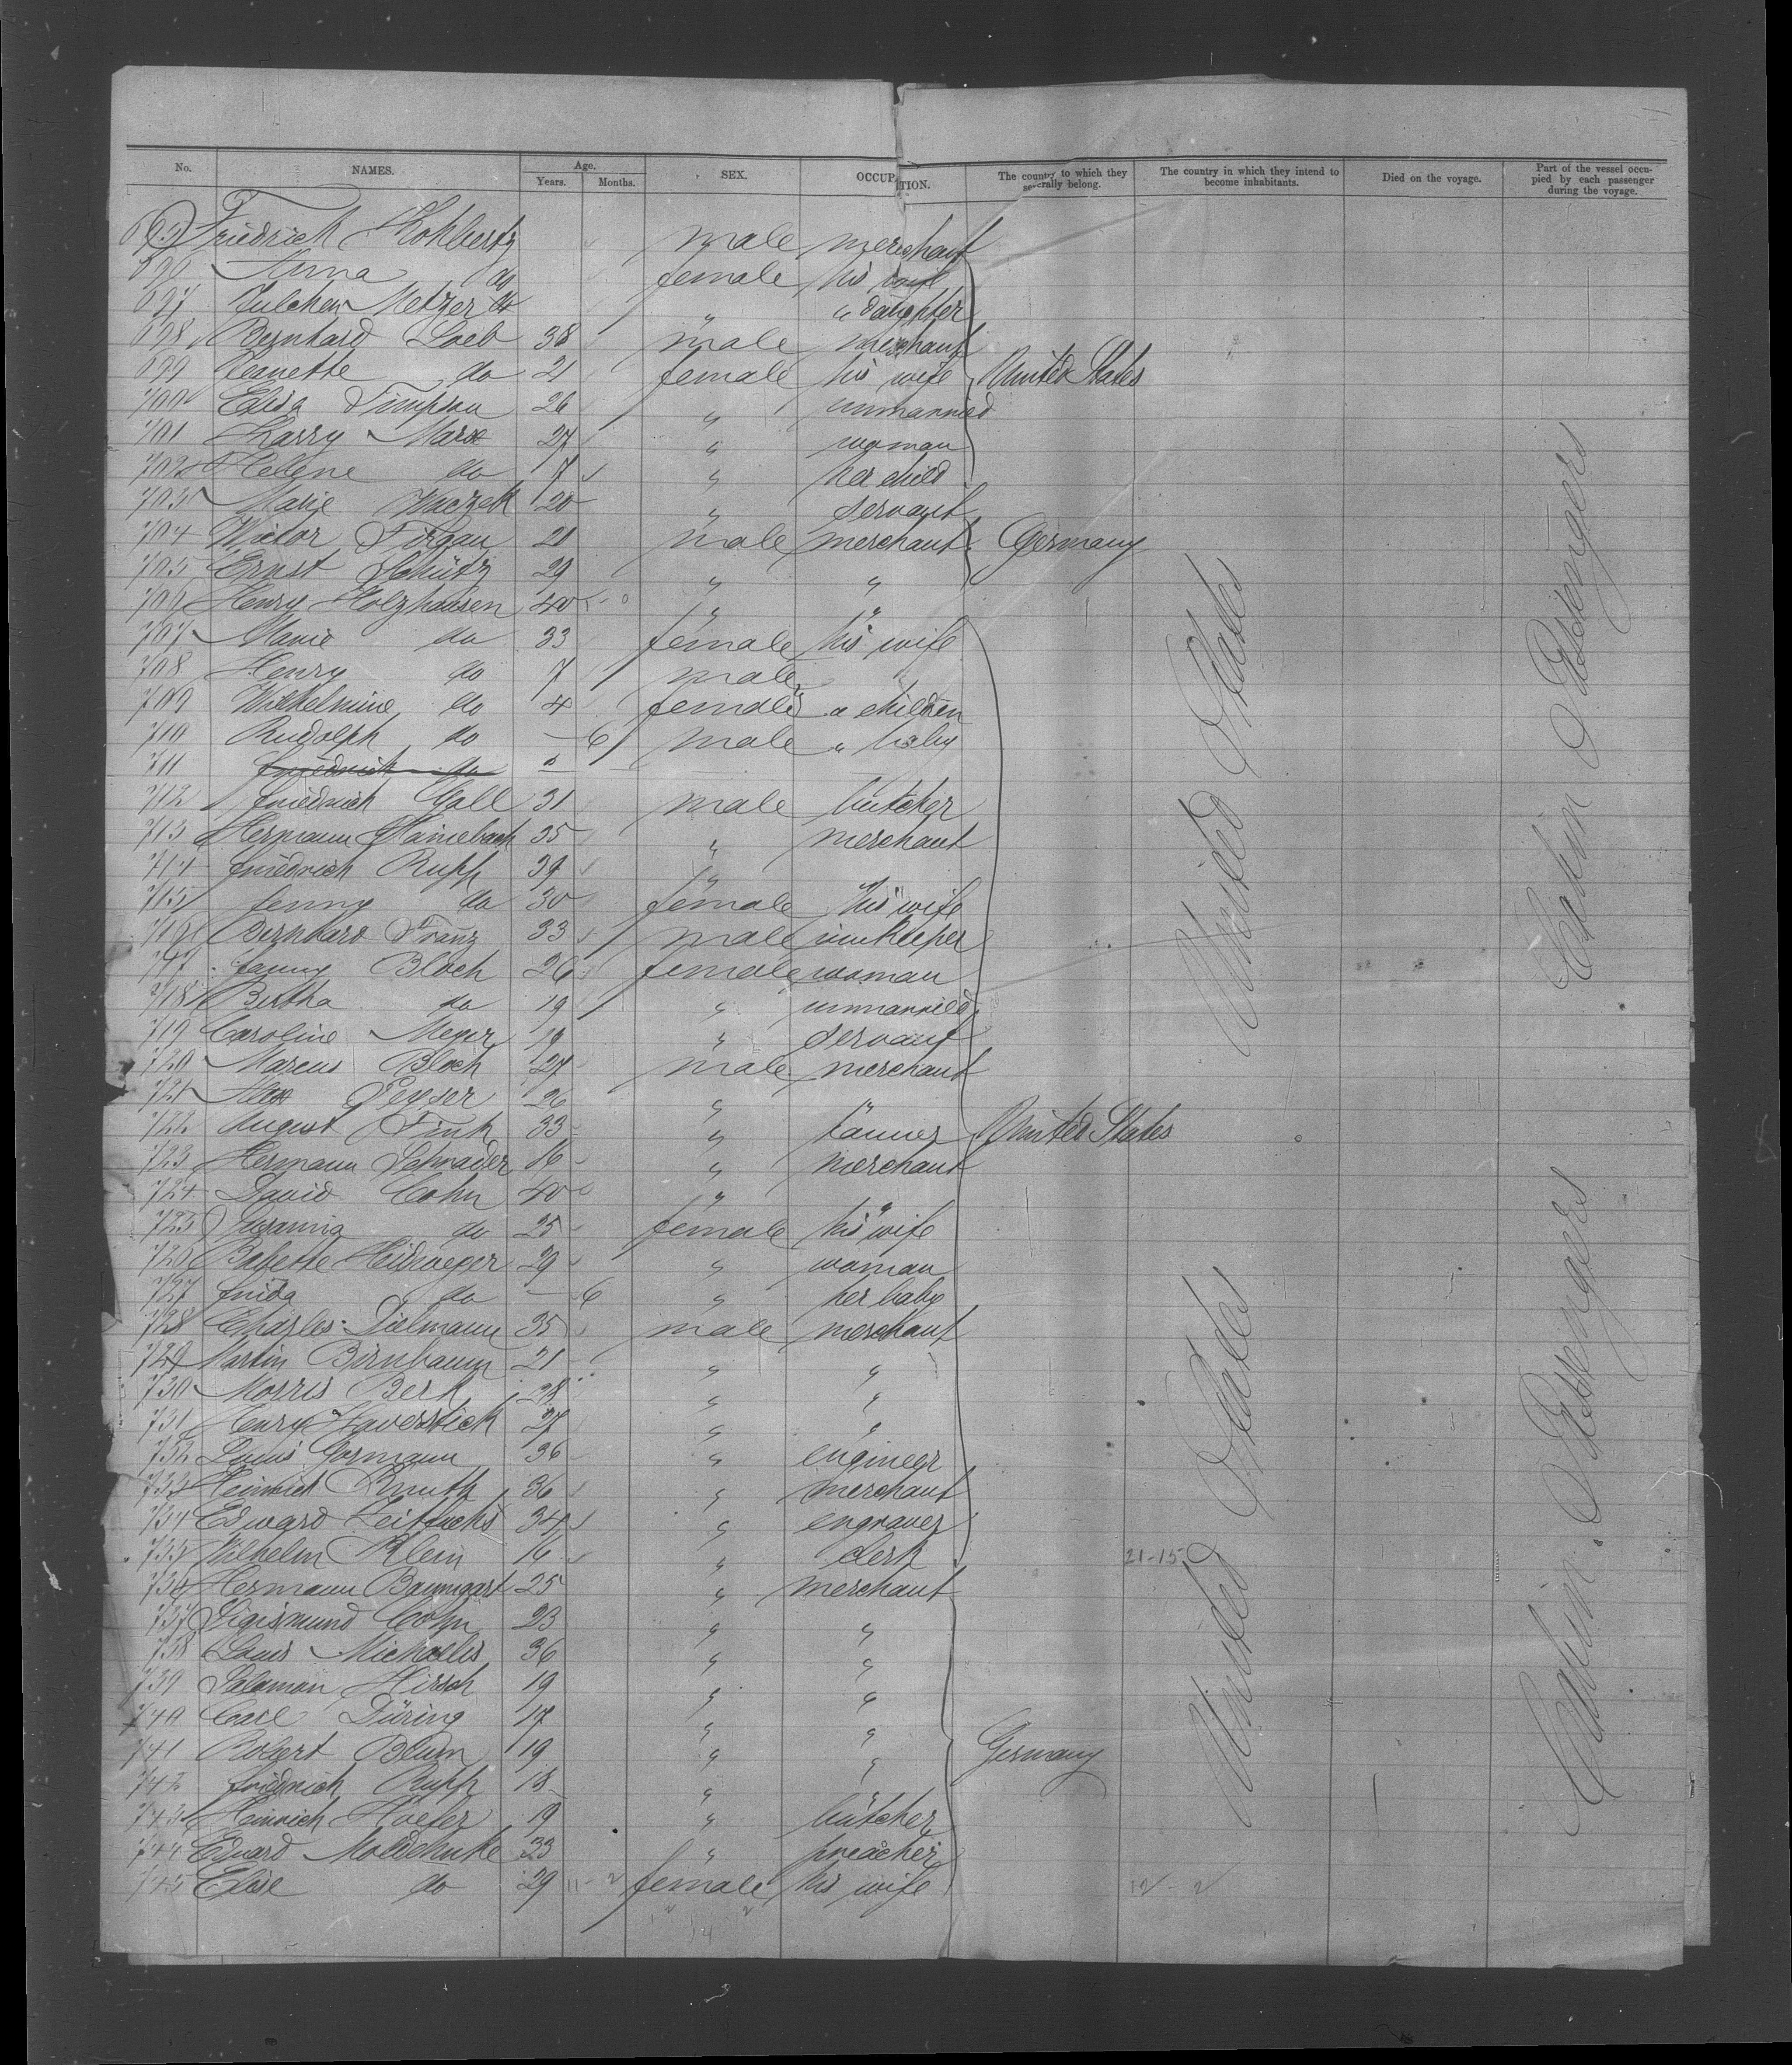 No. NAMES. Age. Years. Months. SEX. OCCUPATION. The country to which they severally belong. The country in which they intend to become inhabitants. Died on the voyage. Part of the vessel occupied by each passenger during the voyage.
695 Friedrich Kohlbertz male merchant
696 Anna do female his wife
697 Julchen Metzer do " " daughter
698 Bernhard Loeb 38 male merchant
699 Jeanette do 21 female his wife United States
700 Elisa Timpson 26 " unmarried
701 Harry Marx 27 " woman
702 Helene do 7 " her child
703 Marie 20 " servant
704 Victor Firgau 21 male merchant Germany
705 Ernst Schütz 29 " "
706 Henry Holzhausen 40 " "
707 Marie do 33 female his wife
708 Henry do 7 male "
709 Wilhelmine do 4 female " children
710 Rudolph do — 6 male " baby
711 Friedrich do
712 Friedrich Gall 31 male butcher
713 Hermann Hainebach 35 " merchant
714 Friedrich Rupp 39 " "
715 Jenny do 30 female his wife
716 Bernhard Franz 33 male innkeeper
717 Fanny Bloch 26 female woman
718 Bertha do 19 " unmarried
719 Caroline Meyer 19 " servant
720 Marcus Bloch 27 male merchant
721 Max Peyser 26 " "
722 August Fink 33 " tanner United States
723 Hermann Schrader 16 " merchant
724 David Cohn 40 " "
725 Susanna do 25 female his wife
726 Babette Heidweger 29 " woman
727 Frida do — 6 " her baby
728 Charles Dielmann 35 male merchant
729 Martin Birnbaum 21 " "
730 Morris Berk 28 " "
731 Henry Haverstick 27 " "
732 Louis Gormann 36 " engineer
733 Heinrich Knuth 36 " merchant
734 Edward Leitfuchs 34 " engraver
735 Wilhelm Klein 16 " clerk 21-15
736 Hermann Baumgart 25 " merchant
737 Sigismund Cohn 23 " "
738 Louis Michaelis 36 " "
739 Salamon Hirsch 19 " "
740 Carl Düring 17 " "
741 Robert Blum 19 " " Germany
742 Friedrich Rupp 18 " "
743 Heinrich Hoefer 19 " butcher
744 Eduard Moldehnke 33 " preacher
745 Elise do 29 11-2 female his wife 12-2
United States
United States
Cabin Passengers
Cabin Passengers